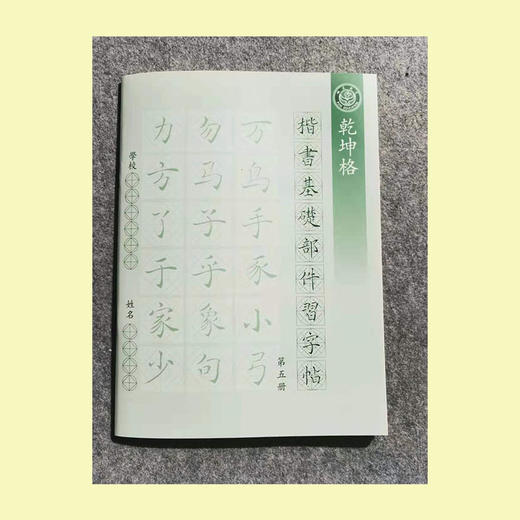 乾坤格
楷書基礎部件習字帖
第五册
万鸟手豕小弓
勿马子乎象句
力方了于家少
學校
姓名